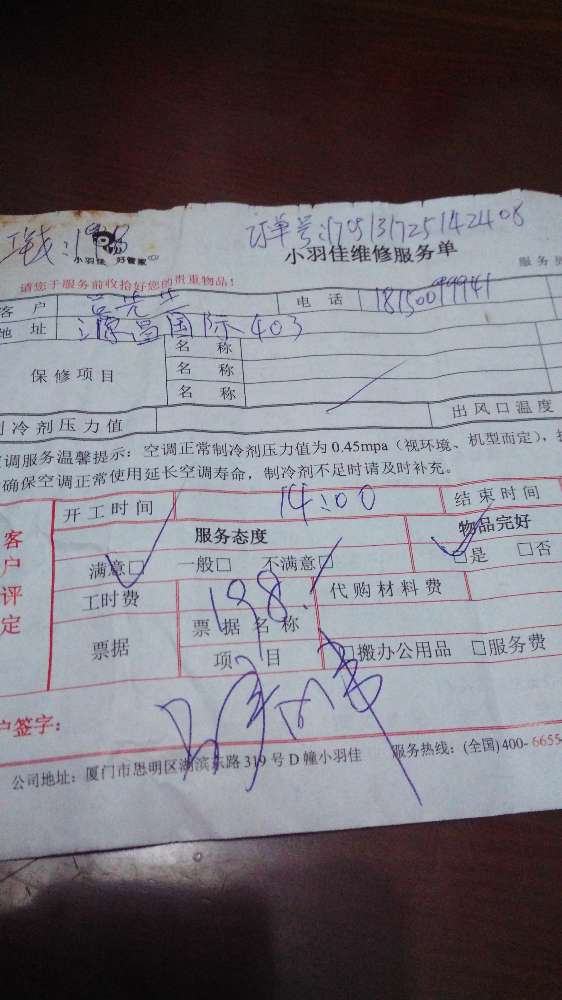 订单号:1705131725142408
小羽佳 好管家
小羽佳维修服务单
请您于服务前收拾好您的贵重物品!
客 户 电 话 18150099941
地 址 源昌国际403
保修项目
名 称
名 称
名 称
制冷剂压力值 出风口温度
空调服务温馨提示:空调正常制冷剂压力值为0.45mpa(视环境、机型而定),
确保空调正常使用延长空调寿命,制冷剂不足时请及时补充。
开工时间 14:00 结束时间
客户评定
服务态度 物品完好
满意□ 一般□ 不满意□ □是 □否
工时费 198 代购材料费
票据 票据名称
项 目 □搬办公用品 □服务费
户签字:
公司地址:厦门市思明区湖滨东路319号D幢小羽佳 服务热线:(全国)400-6655